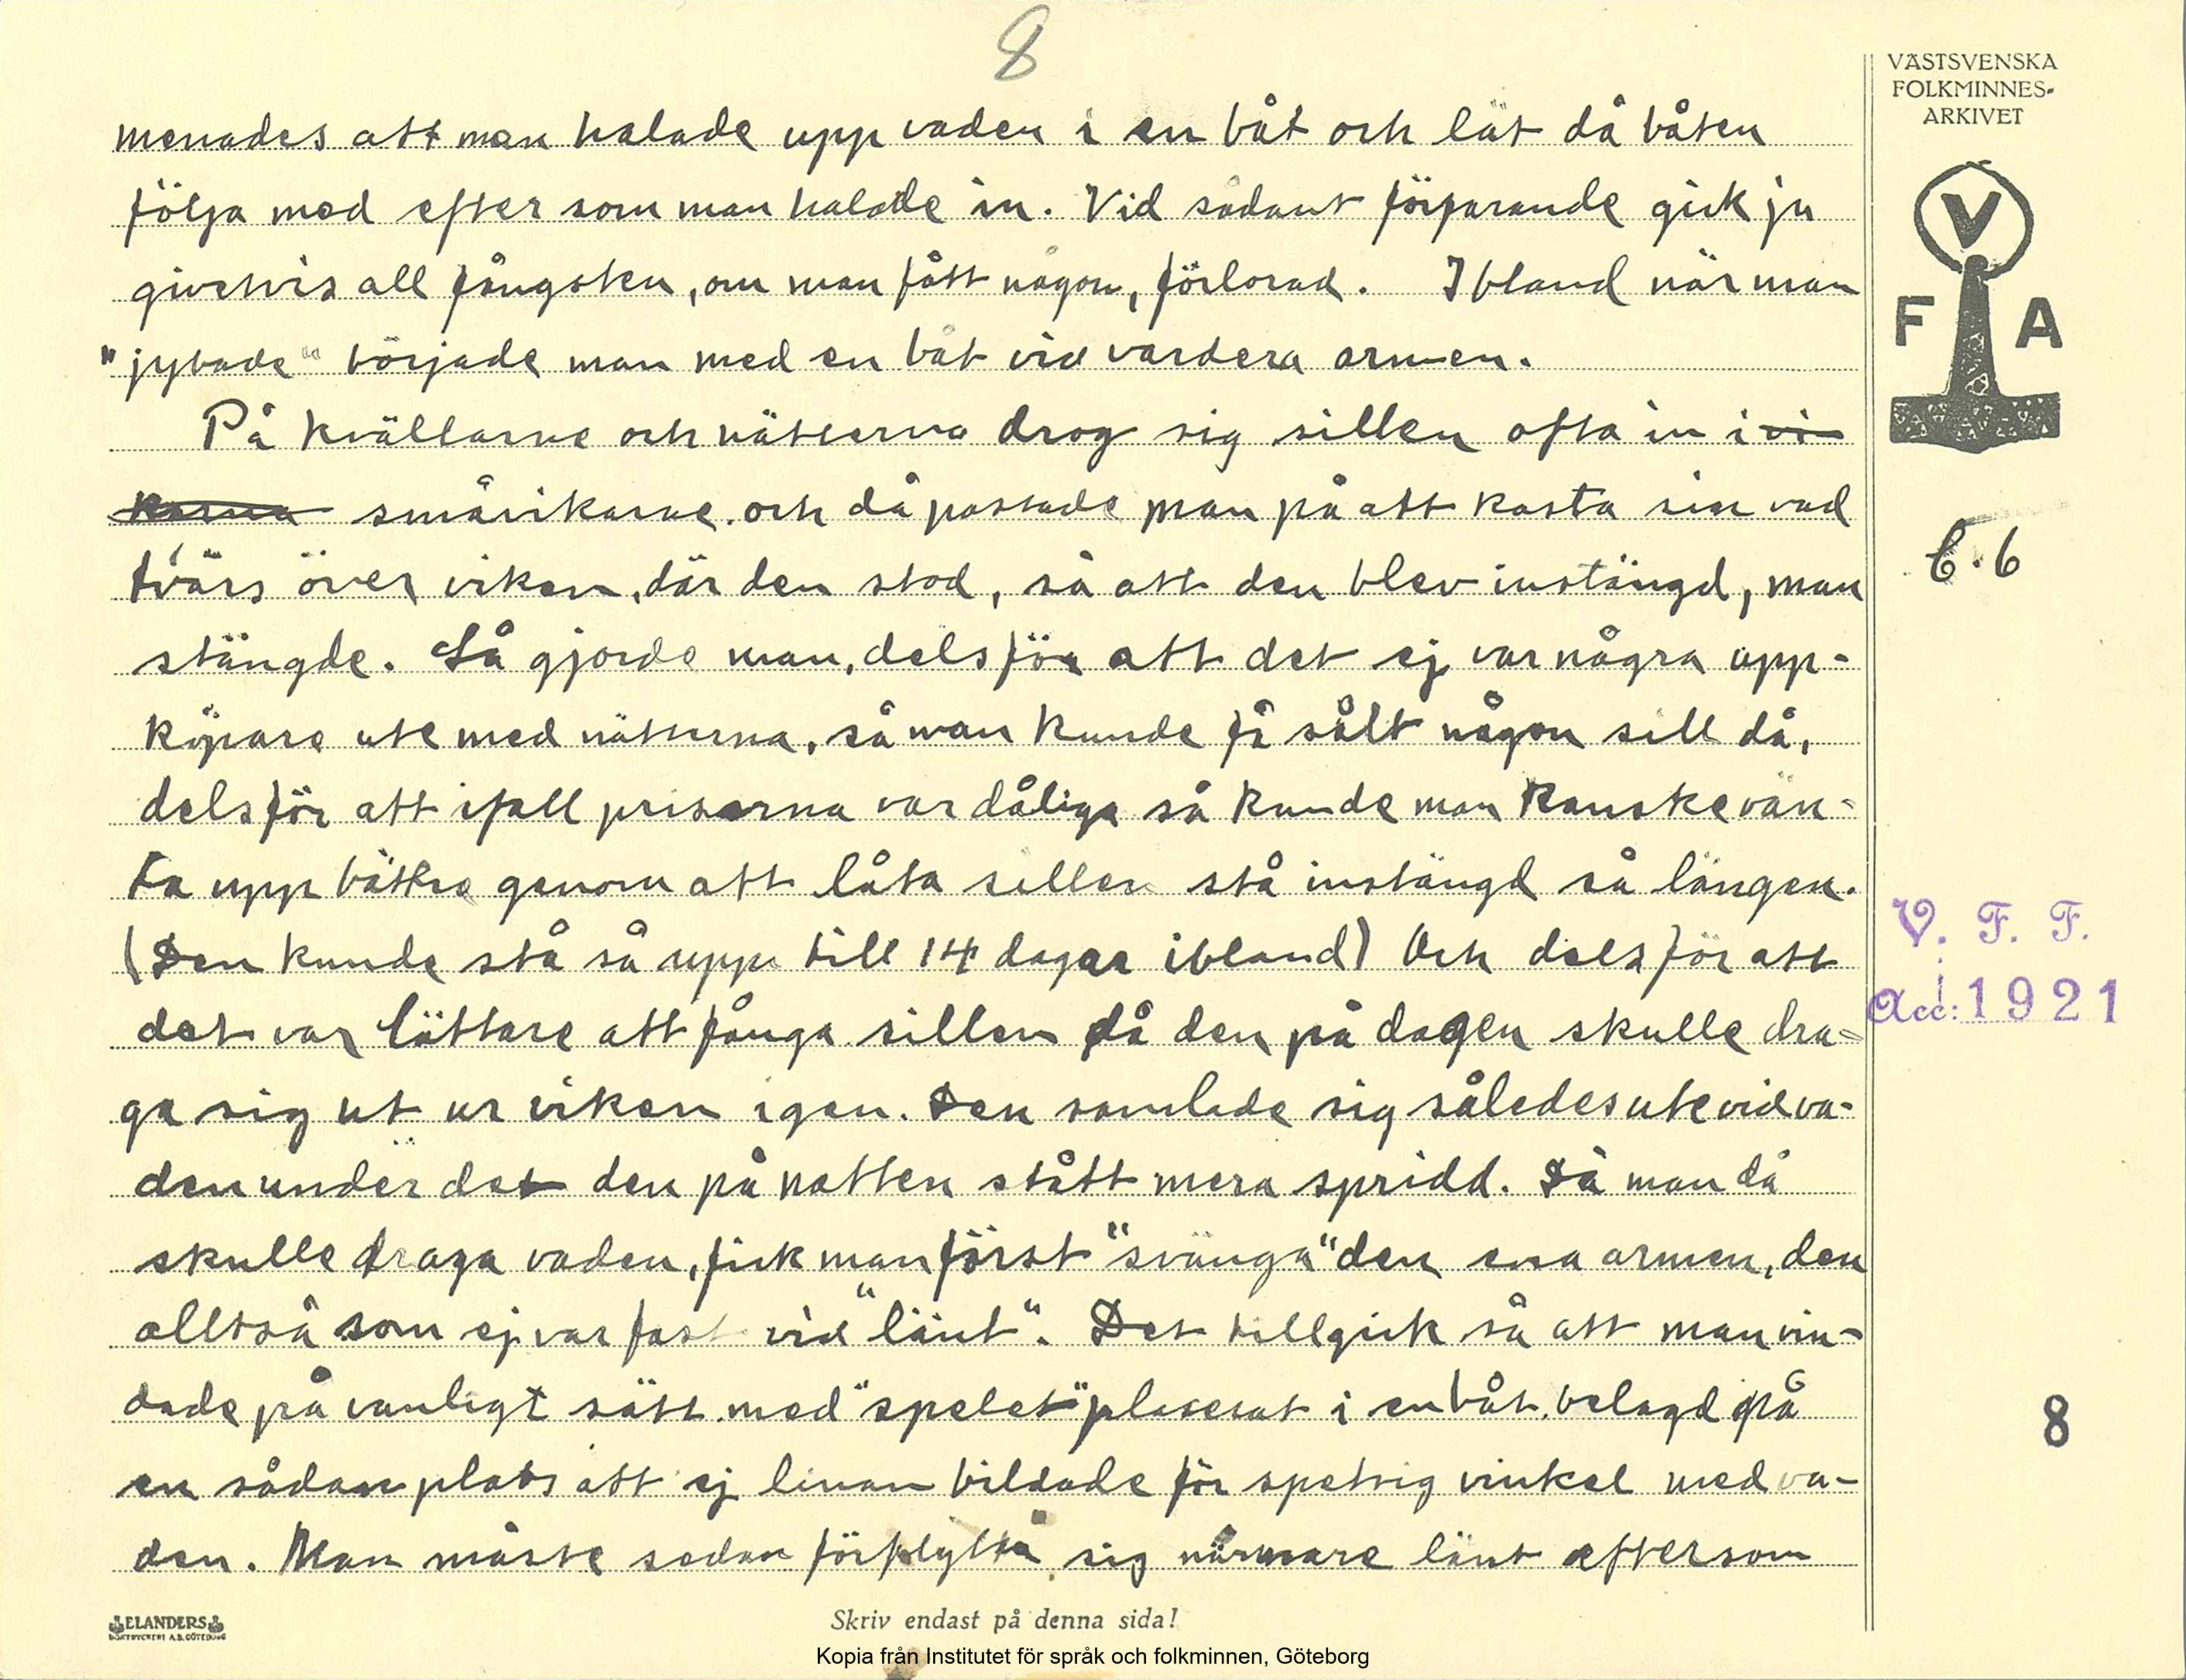 8
VÄSTSVENSKA
FOLKMINNES-
ARKIVET
V
F A
C.6
V. F. F.
Acc: 1921
8
menades att man halade upp vaden i en båt och lät då båten
följa med efter som man halade in. Vid sådant förfarande gick ju
givetvis all fångsten, om man fått någon, förlorad. Ibland när man
"jybade" började man med en båt vid vardera armen.
På kvällarne och nätterna drog sig sillen ofta in i vi
karna småvikarne. och då passade man på att kasta sin vad
tvärs över viken, där den stod, så att den blev instängd, man
stängde. Så gjorde man, dels för att det ej var några upp-
köpare ute med nätterna, så man kunde få sålt någon sill då,
dels för att ifall priserna var dåliga så kunde man kanske vän-
ta upp bättre genom att låta sillen stå instängd så längen.
(Den kunde stå så uppe till 14 dagar ibland) Och dels för att
det var lättare att fånga sillen då den på dagen skulle dra-
ga sig ut ur viken igen. Den samlade sig således ute vid va-
den under det den på natten stått mera spridd. Då man då
skulle draga vaden, fick man först "svänga" den ena armen, den
alltså som ej var fast vid "länt". Det tillgick så att man vin-
dade på vanligt sätt med "spelet" placerat i en båt, belagd på
en sådan plats att ej linan bildade för spetsig vinkel med va-
den. Man måste sedan förflytta sig närmare länt eftersom
ELANDERS
BOKTRYCKERI A.B. GÖTEBORG
Skriv endast på denna sida!
Kopia från Institutet för språk och folkminnen, Göteborg